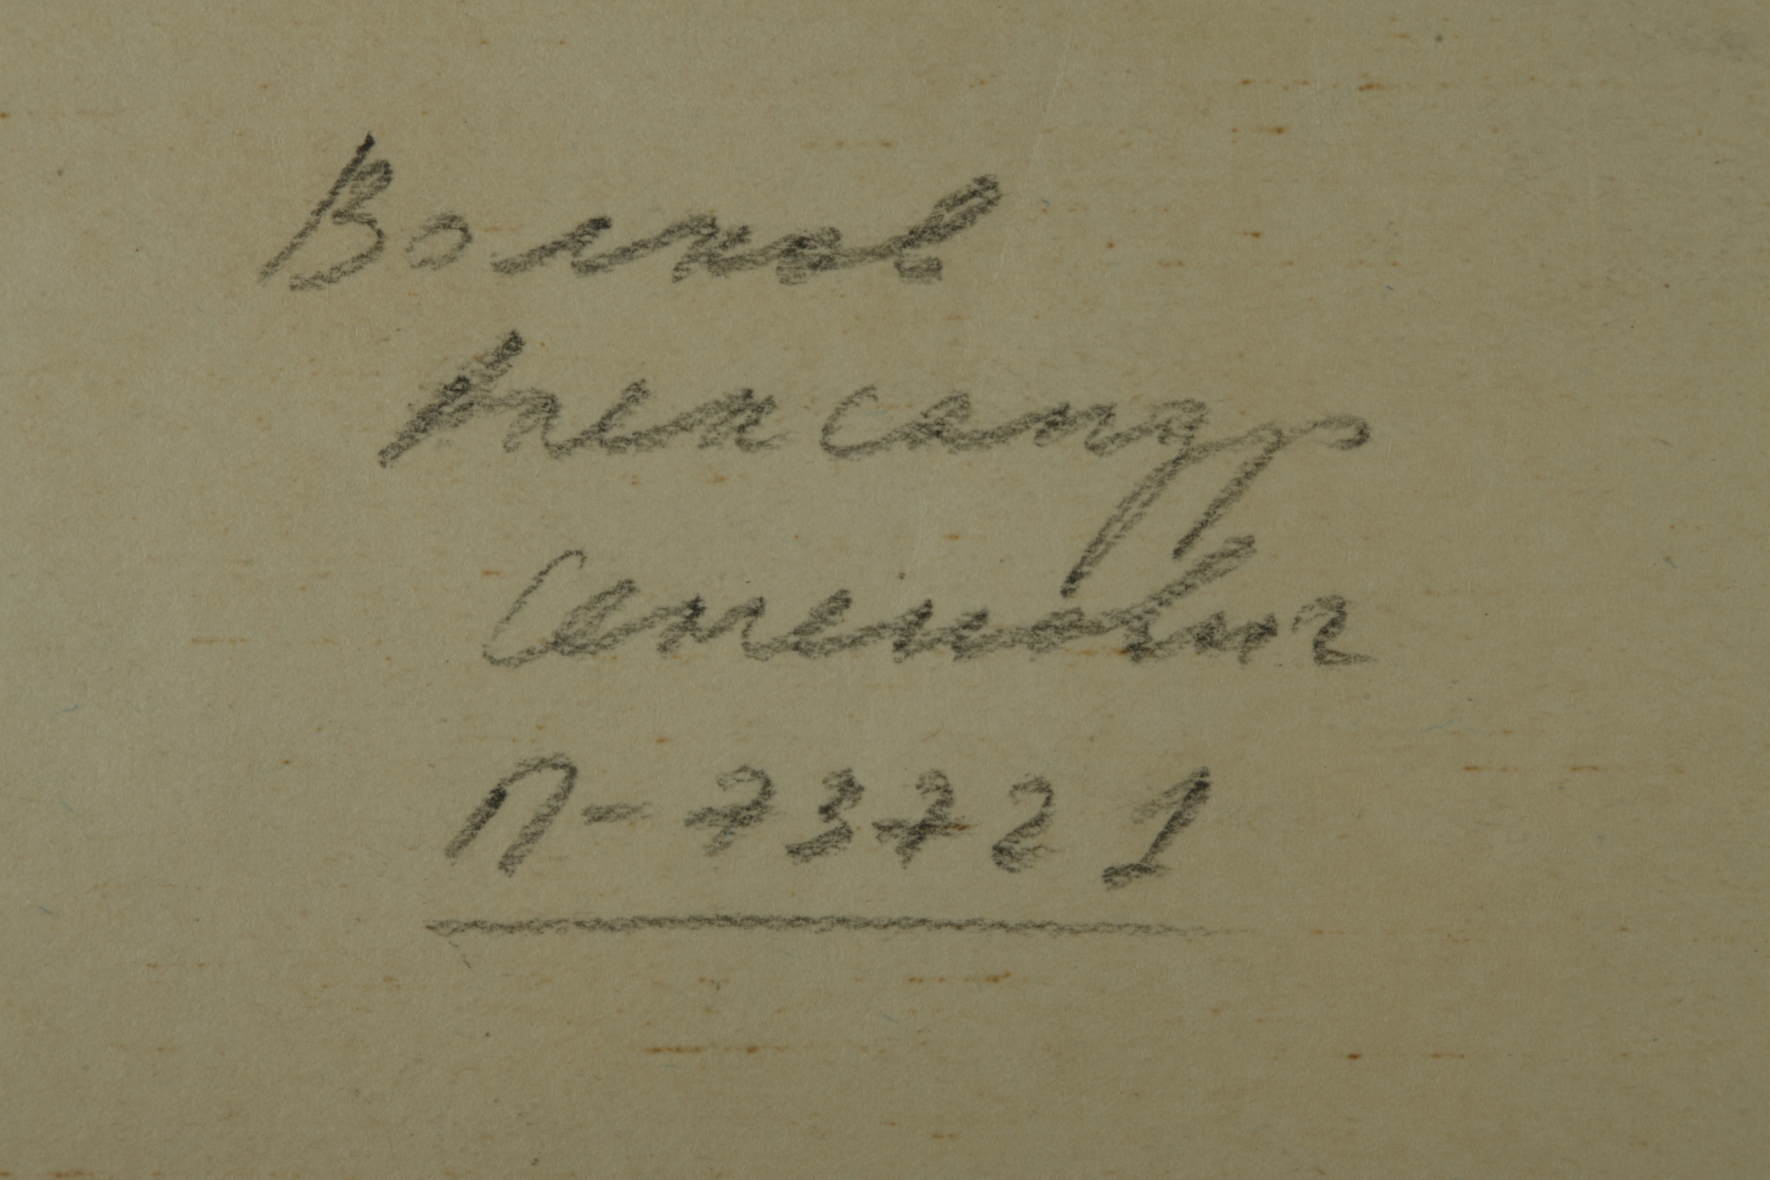 Волков
Александр
Семенович
П-73721